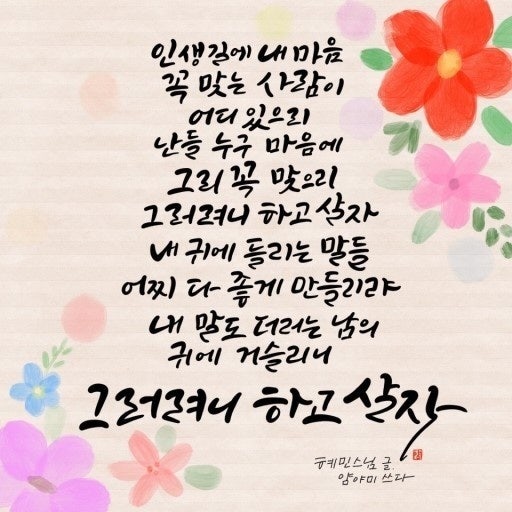 인생길에 내 마음
꼭 맞는 사람이
어디 있으리
난들 누구 마음에
그리 꼭 맞으리
그러려니 하고 살자
내 귀에 들리는 말들
어찌 다 좋게 만들리랴
내 말도 더러는 남의
귀에 거슬리니
그러려니 하고 살자
혜민스님 글.
얌야미 쓰다